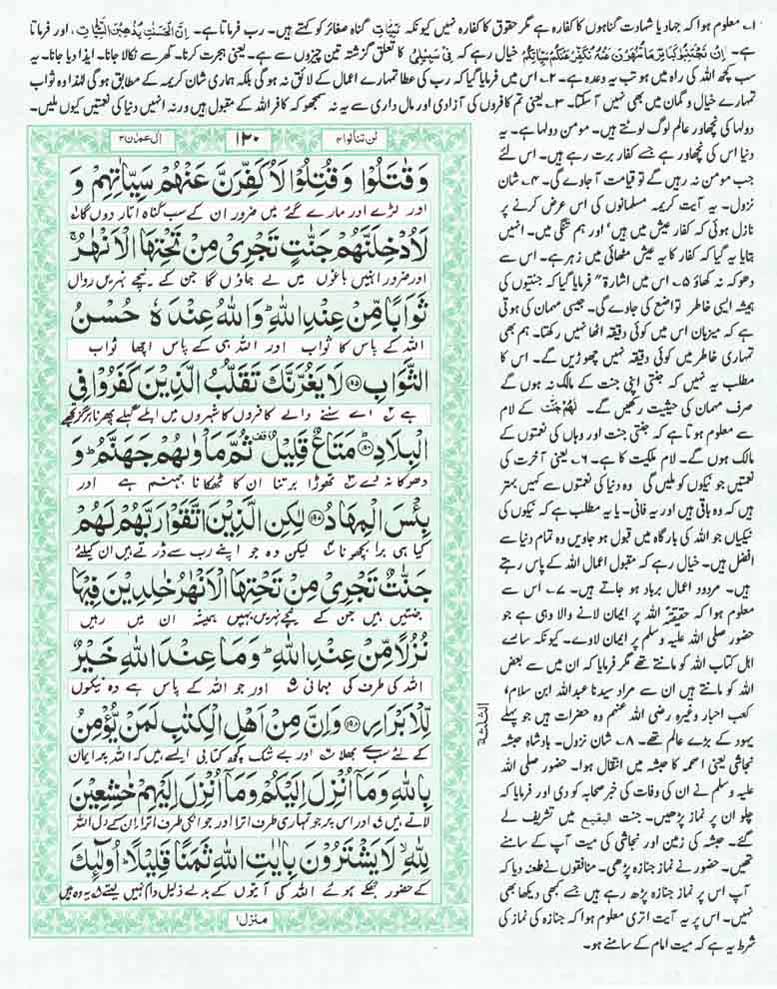 ۱۔ معلوم ہوا کہ جہاد یا شہادت گناہوں کا کفارہ ہے مگر حقوق کا کفارہ نہیں کیونکہ سَیِّاٰتِ گناہ صغائر کو کہتے ہیں۔ رب فرماتا ہے۔ اِنَّ الْحَسَنٰتِ یُذْهِبْنَ السَّیِّاٰتِ، اور فرماتا
ہے۔ اِنْ تَجْتَنِبُوْا كَبَآىٕرَ مَا تُنْهَوْنَ عَنْهُ نُكَفِّرْ عَنْكُمْ سَیِّاٰتِكُمْ خیال رہے کہ فِیْ سَبِیْلِیْ کا تعلق گزشتہ تین چیزوں سے ہے۔ یعنی ہجرت کرنا۔ گھر سے نکالا جانا۔ ایذا دیا جانا۔ یہ
سب کچھ اللہ کی راہ میں ہو تب یہ وعدہ ہے۔ ۲۔ اس میں فرمایا گیا کہ رب کی عطا تمہارے اعمال کے لائق نہ ہوگی بلکہ ہماری شان کریمہ کے مطابق ہوگی لہٰذا وہ ثواب
تمہارے خیال و گمان میں بھی نہیں آ سکتا۔ ۳۔ یعنی تم کافروں کی آزادی اور مال داری سے یہ نہ سمجھو کہ کافر اللہ کے مقبول ہیں ورنہ انہیں دنیا کی نعمتیں کیوں ملیں۔
دولہا کی نچھاور عالم لوگ لوٹتے ہیں۔ مومن دولہا ہے۔ یہ
دنیا اس کی نچھاور ہے جسے کفار برت رہے ہیں۔ اس لئے
جب مومن نہ رہیں گے تو قیامت آ جاوے گی۔ ۴۔ شان
نزول۔ یہ آیت کریمہ مسلمانوں کی اس عرض کرنے پر
نازل ہوئی کہ کفار عیش میں ہیں، اور ہم تنگی میں۔ انہیں
بتایا یہ گیا کہ کفار کا یہ عیش مٹھائی میں زہر ہے۔ اس سے
دھوکہ نہ کھاؤ ۵۔ اس میں اشارۃ" فرمایا گیا کہ جنتیوں کی
ہمیشہ ایسی خاطر تواضع کی جاوے گی۔ جیسی مہمان کی ہوتی
ہے کہ میزبان اس میں کوئی دقیقہ اٹھا نہیں رکھتا۔ ہم بھی
تمہاری خاطر میں کوئی دقیقہ نہیں چھوڑیں گے۔ اس کا
مطلب یہ نہیں کہ جنتی اپنی جنت کے مالک نہ ہوں گے
صرف مہمان کی حیثیت رکھیں گے۔ لَهُمْ جَنّٰتٌ کے لام
سے معلوم ہوتا ہے کہ جنتی جنت اور وہاں کی نعمتوں کے
مالک ہوں گے۔ لام ملکیت کا ہے۔ ۶۔ یعنی آخرت کی
نعمتیں جو نیکوں کو ملیں گی وہ دنیا کی نعمتوں سے کہیں بہتر
ہیں کہ وہ باقی ہیں اور یہ فانی۔ یا یہ مطلب ہے کہ نیکوں کی
نیکیاں جو اللہ کی بارگاہ میں قبول ہو جاویں وہ تمام دنیا سے
افضل ہیں۔ خیال رہے کہ مقبول اعمال اللہ کے پاس رہتے
ہیں۔ مردود اعمال برباد ہو جاتے ہیں۔ ۷۔ اس سے
معلوم ہوا کہ حقیقۃً اللہ پر ایمان لانے والا وہی ہے جو
حضور صلی اللہ علیہ وسلم پر ایمان لاوے۔ کیونکہ سارے
اہل کتاب اللہ کو مانتے تھے مگر فرمایا کہ ان میں سے بعض
اللہ کو مانتے ہیں ان سے مراد سیدنا عبداللہ ابن سلام،
کعب احبار وغیرہ رضی اللہ عنہم وہ حضرات ہیں جو پہلے
یہود کے بڑے عالم تھے۔ ۸۔ شان نزول۔ بادشاہ حبشہ
نجاشی یعنی اصحمہ کا حبشہ میں انتقال ہوا۔ حضور صلی اللہ
علیہ وسلم نے ان کی وفات کی خبر صحابہ کو دی اور فرمایا کہ
چلو ان پر نماز پڑھیں۔ جنت البقیع میں تشریف لے
گئے۔ حبشہ کی زمین اور نجاشی کی میت آپ کے سامنے
تھیں۔ حضور نے نماز جنازہ پڑھی۔ منافقوں نے طعنہ دیا کہ
آپ اس پر نماز جنازہ پڑھ رہے ہیں جسے کبھی دیکھا بھی
نہیں۔ اس پر یہ آیت اتری معلوم ہوا کہ جنازہ کی نماز کی
شرط یہ ہے کہ میت امام کے سامنے ہو۔
الثلثة
لن تنالوا ۴ ۱۲۰ اٰل عمرٰن ۳
وَ قٰتَلُوْا وَ قُتِلُوْا لَاُكَفِّرَنَّ عَنْهُمْ سَیِّاٰتِهِمْ وَ
اور لڑے اور مارے گئے میں ضرور ان کے سب گناہ اتار دوں گا ۱ اور
لَاُدْخِلَنَّهُمْ جَنّٰتٍ تَجْرِیْ مِنْ تَحْتِهَا الْاَنْهٰرُۚ
اور ضرور انہیں باغوں میں لے جاؤں گا جن کے نیچے نہریں رواں
ثَوَابًا مِّنْ عِنْدِ اللّٰهِؕ وَ اللّٰهُ عِنْدَهٗ حُسْنُ
اللہ کے پاس کا ثواب اور اللہ ہی کے پاس اچھا ثواب
الثَّوَابِ ۱۹۵ لَا یَغُرَّنَّكَ تَقَلُّبُ الَّذِیْنَ كَفَرُوْا فِی
ہے ۲ اے سننے والے کافروں کا شہروں میں اہلے گہلے پھرنا ہرگز تجھے
الْبِلَادِؕ ۱۹۶ مَتَاعٌ قَلِیْلٌ۫ ثُمَّ مَاْوٰىهُمْ جَهَنَّمُؕ وَ
دھوکا نہ دے ۳ تھوڑا برتنا ان کا ٹھکانا جہنم ہے اور
بِئْسَ الْمِهَادُ ۱۹۷ لٰكِنِ الَّذِیْنَ اتَّقَوْا رَبَّهُمْ لَهُمْ
کیا ہی برا بچھونا ۴ لیکن وہ جو اپنے رب سے ڈرتے ہیں ان کیلئے
جَنّٰتٌ تَجْرِیْ مِنْ تَحْتِهَا الْاَنْهٰرُ خٰلِدِیْنَ فِیْهَا
جنتیں ہیں جن کے نیچے نہریں بہیں ہمیشہ ان میں رہیں
نُزُلًا مِّنْ عِنْدِ اللّٰهِؕ وَ مَا عِنْدَ اللّٰهِ خَیْرٌ
اللہ کی طرف کی مہمانی ۵ اور جو اللہ کے پاس ہے وہ نیکوں
لِّلْاَبْرَارِ ۱۹۸ وَ اِنَّ مِنْ اَهْلِ الْكِتٰبِ لَمَنْ یُّؤْمِنُ
کے لئے سب سے بھلا ۶ اور بے شک کچھ کتابی ایسے ہیں کہ اللہ پر ایمان
بِاللّٰهِ وَ مَاۤ اُنْزِلَ اِلَیْكُمْ وَ مَاۤ اُنْزِلَ اِلَیْهِمْ خٰشِعِیْنَ
لاتے ہیں ۷ اور اس پر جو تمہاری طرف اترا اور جو انکی طرف اترا ان کے دل اللہ
لِلّٰهِۙ لَا یَشْتَرُوْنَ بِاٰیٰتِ اللّٰهِ ثَمَنًا قَلِیْلًاؕ اُولٰٓىٕكَ
کے حضور جھکے ہوئے اللہ کی آیتوں کے بدلے ذلیل دام نہیں لیتے ۸ یہ وہ ہیں
منزل ۱